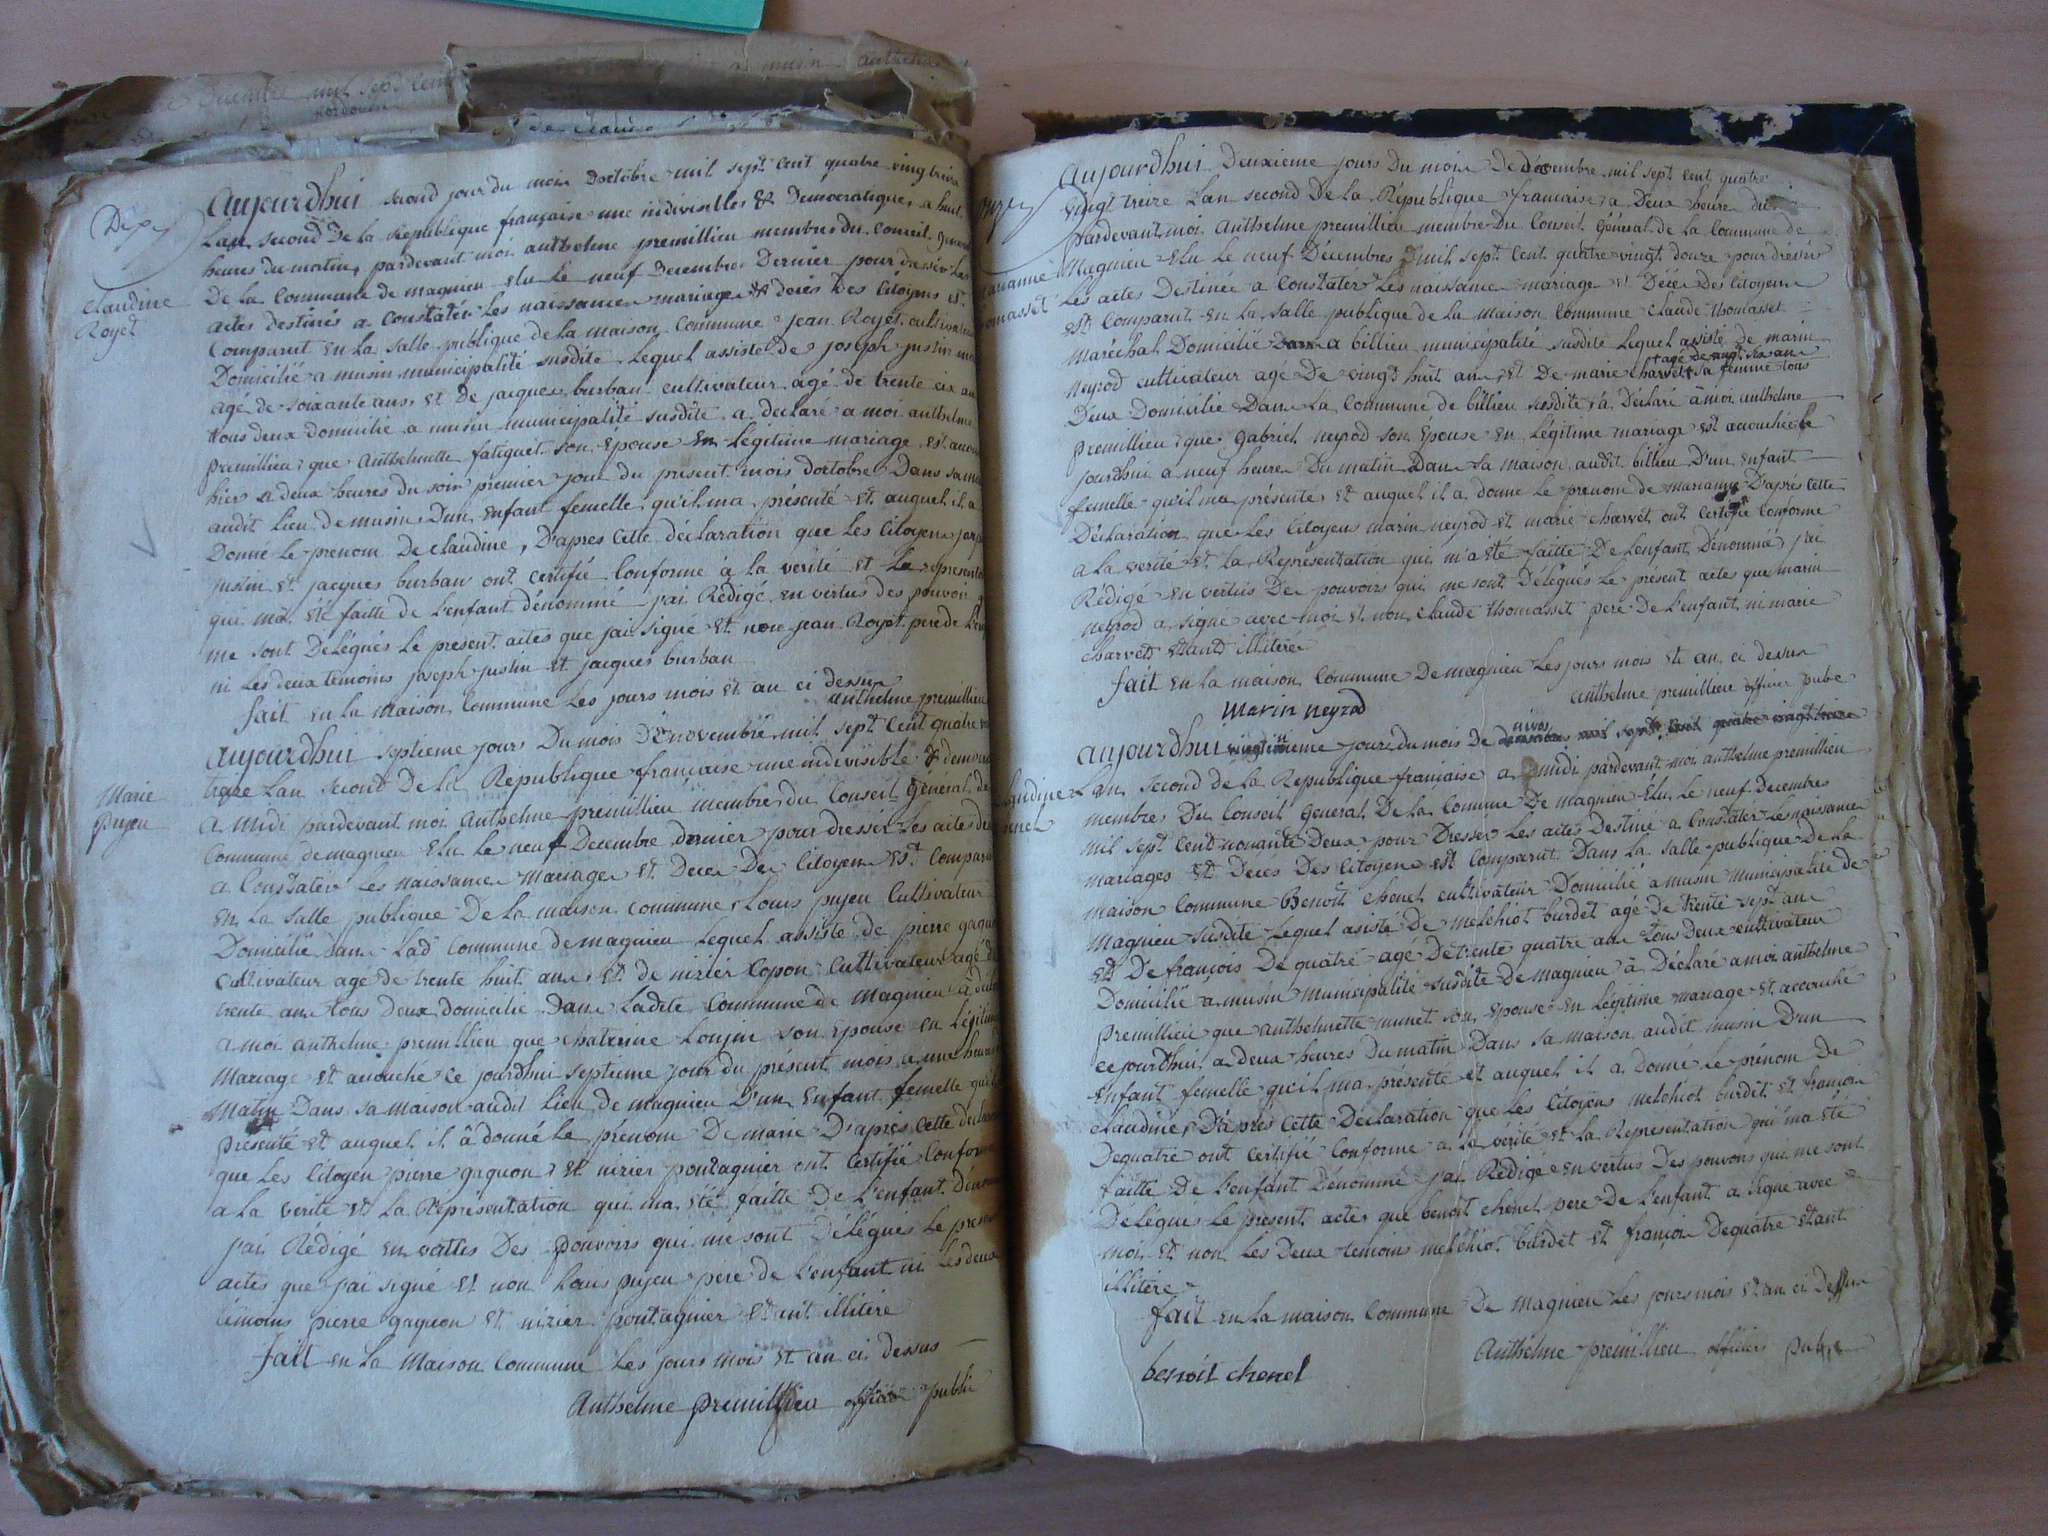 Dix
Claudine
Royet
Aujourdhui second jour du mois doctobre mil sept cent quatre vingt treize
Lan second De la Republique française une indivisible et Democratique a huit
heures du matin, pardevant moi anthelme premillieu membre du conseil general
De la Commune de magnieu elu le neuf Decembre Dernier pour dresser les
actes destinés a constater Les naissances mariages et décès Des Citoyens est
Comparut en la salle publique de la maison Commune jean Royet cultivateur
Domicilié a musin municipalité susdite lequel assisté de joseph justin
agé de soixante ans et De jacques burban cultivateur agé de trente six an
tous deux domicilié a musin municipalité susdite a declaré a moi anthelme
premillieu que Anthelmette fatiguet son épouse en légitime mariage est
hier a deux heures du soir premier jour du present mois doctobre Dans sa
audit lieu de musin D'un enfant femelle qu'il ma présenté et auquel il a
Donné le prenom De claudine, D'apres cette déclaration que les Citoyens
justin et jacques burban ont certifié Conforme à la vérité et la
qui ma été faitte de l'enfant dénommé j'ai Rédigé en vertus des pouvoir
me sont Délégués le present actes que jai signé et non jean Royet pere de
ni les deux temoins joseph justin et jacques burban
fait en la maison Commune les jours mois et an ci dessus
anthelme premillieu
Marie
pujeu
aujourdhui septieme jours Du mois De novembre mil sept cent quatre
treize Lan second De la Republique francaise une indivisible et
a midi pardevant moi Anthelme premillieu membre du Conseil Général de
Commune de magnieu elu le neuf Decembre dernier pour dresser les actes
a Constater les naissances mariages et Deces Des Citoyens est Comparut
en la salle publique De la maison commune Louis pujeu Cultivateur
Domicilié dans Lad Commune de magnieu lequel assisté de pierre
Cultivateur agé de trente huit ans et de nizier Copon Cultivateur agé
trente ans tous deux domicilié Dans ladite Commune de Magnieu
a moi anthelme premillieu que son épouse en légitime
Mariage et acouché ce jourdhui septieme jour du présent mois a une heure
Matin Dans sa maison audit lieu de magnieu D'un enfant femelle
présenté et auquel il a donné le prénom De marie D'apres cette
que les Citoyen pierre gagnon et nizier pontagnier ont Certifié Conforme
a la verité et la Représentation qui ma été faitte De l'enfant
j'ai Rédigé en Des pouvoirs qui me sont Délégués le present
actes que j'ai signé et non Louis pujeu pere de l'enfant ni les deux
témoins pierre gagnon et nizier pontagnier illitére
fait en la Maison Commune les jours mois et an ci dessus
Anthelme premillieu officier public
Aujourdhui Deuxieme jours Du mois De décembre mil sept cent quatre
vingt treize Lan second De la République francaise a Deux heure du
pardevant moi Anthelme premillieu membre Du Conseil Général de la Commune de
Magnieu Elu le neuf Décembres mil sept cent quatre vingt douze pour
Les actes Destinée a Constater les naissance mariage et Décès Des Citoyens
est Comparut en la salle publique de la maison Commune Claude thomasset
maréchal Domicilié a billieu municipalité susdite lequel assisté de marin
neyrod cultivateur agé De vingt huit ans et De marie charvet sa femme tous
Deux Domicilié Dans la Commune de billieu susdite a Déclaré à moi anthelme
premillieu que Gabriel neyrod son épouse en légitime mariage est acouchée
jourdhui a neuf heure Du matin Dans sa maison audit billieu D'un enfant
femelle qu'il ma présenté, et auquel il a donné le prenom de marianne D'après cette
Déclaration que les Citoyens marin neyrod et marie charvet ont Certifié Conforme
a la verité et la Représentation qui m'a été faitte De l'enfant Dénommé j'ai
Rédigé en vertus De pouvoirs qui me sont Délégués le présent actes que marin
neyrod a signé avec moi et non Claude thomasset pere de l'enfant ni marie
charvet étants illitéré
fait en la maison Commune De magnieu les jours mois et an ci dessus
anthelme premillieu officier
marin neyrod
aujourdhui jours du mois de nivos
Lan second de la Republique française a midi pardevant moi anthelme premillieu
membres Du Conseil General De la Comune De magnieu Elu le neuf Decembres
mil sept Cent nonante Deux pour Dresser les actes Destine a Constater les naissance
mariages et Deces Des Citoyens est Comparut Dans la salle publique De la
maison Commune Benoit chenel cultivateur Domicilié a musin municipalité de
magnieu susdite lequel asisté De melchiot burdet agé De trente sept ans
et De françois De quatre agé De trente quatre ans tous Deux cultivateur
Domicilié a musin municipalité susdite De magnieu à Déclaré a moi anthelme
premillieu que anthelmette munet son epouse en légitime mariage et accouché
ce jourdhui a deux heures Du matin Dans sa maison audit musin D'un
enfant femelle qu'il ma présenté et auquel il a Donné le prénom De
Claudine, D'après cette Declaration que les Citoyens melchiot burdet et françois
Dequatre ont certifié Conforme a la vérité et la Représentation qui ma été
faitte De l'enfant Dénommé j'ai Rédigé en vertus Des pouvoirs qui me sont
Délégués le présent actes que benoit chenel pere De l'enfant a signé avec
moi et non les Deux temoins melchiot burdet et françois Dequatre étant
illitéré
fait en la maison Commune De magnieu les jours mois et an ci Dessus
Anthelme premillieu officier public
benoit chenel